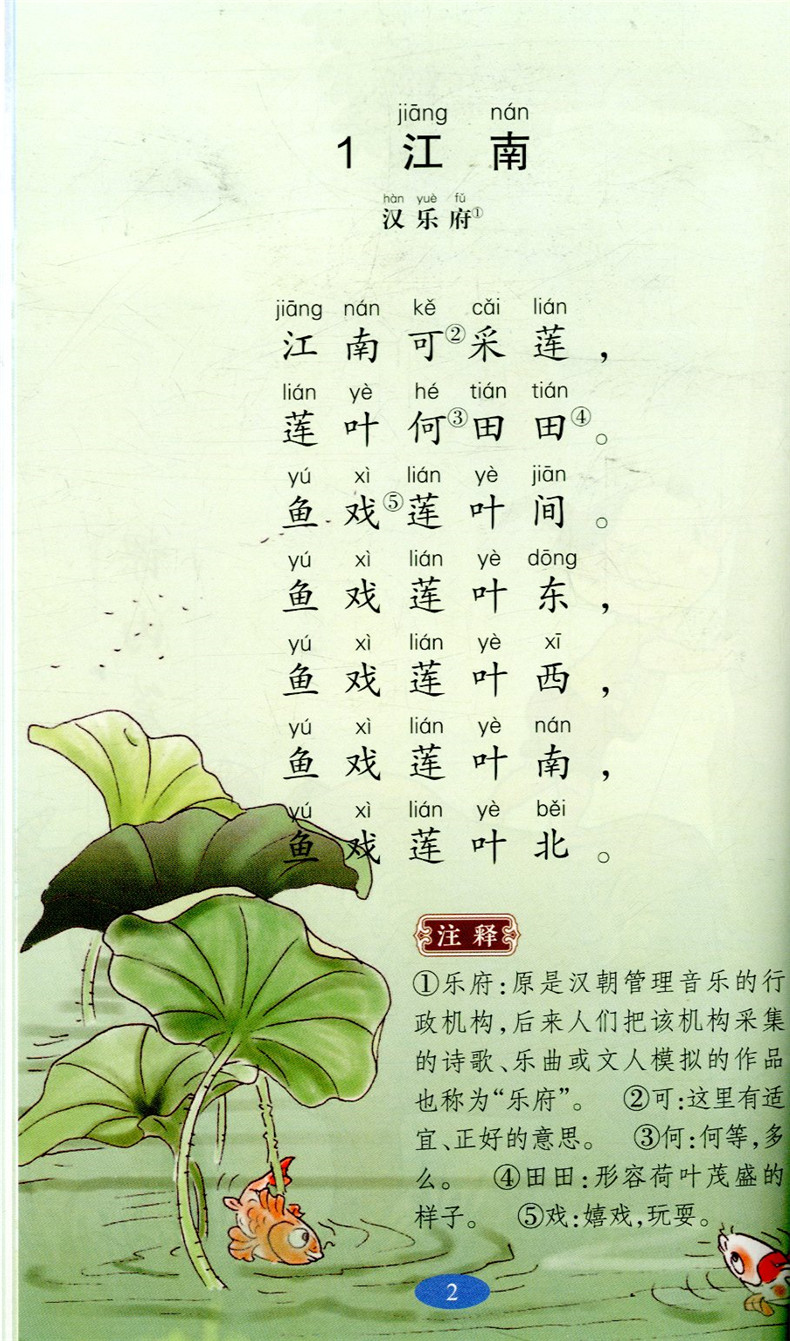 jiāng nán
1 江 南
hàn yuè fǔ
汉 乐 府①
jiāng nán kě cǎi lián
江 南 可②采 莲，
lián yè hé tián tián
莲 叶 何③田 田④。
yú xì lián yè jiān
鱼 戏⑤莲 叶 间。
yú xì lián yè dōng
鱼 戏 莲 叶 东，
yú xì lián yè xī
鱼 戏 莲 叶 西，
yú xì lián yè nán
鱼 戏 莲 叶 南，
yú xì lián yè běi
鱼 戏 莲 叶 北。
注 释
①乐府：原是汉朝管理音乐的行
政机构，后来人们把该机构采集
的诗歌、乐曲或文人模拟的作品
也称为“乐府”。 ②可：这里有适
宜、正好的意思。 ③何：何等，多
么。 ④田田：形容荷叶茂盛的
样子。 ⑤戏：嬉戏，玩耍。
2